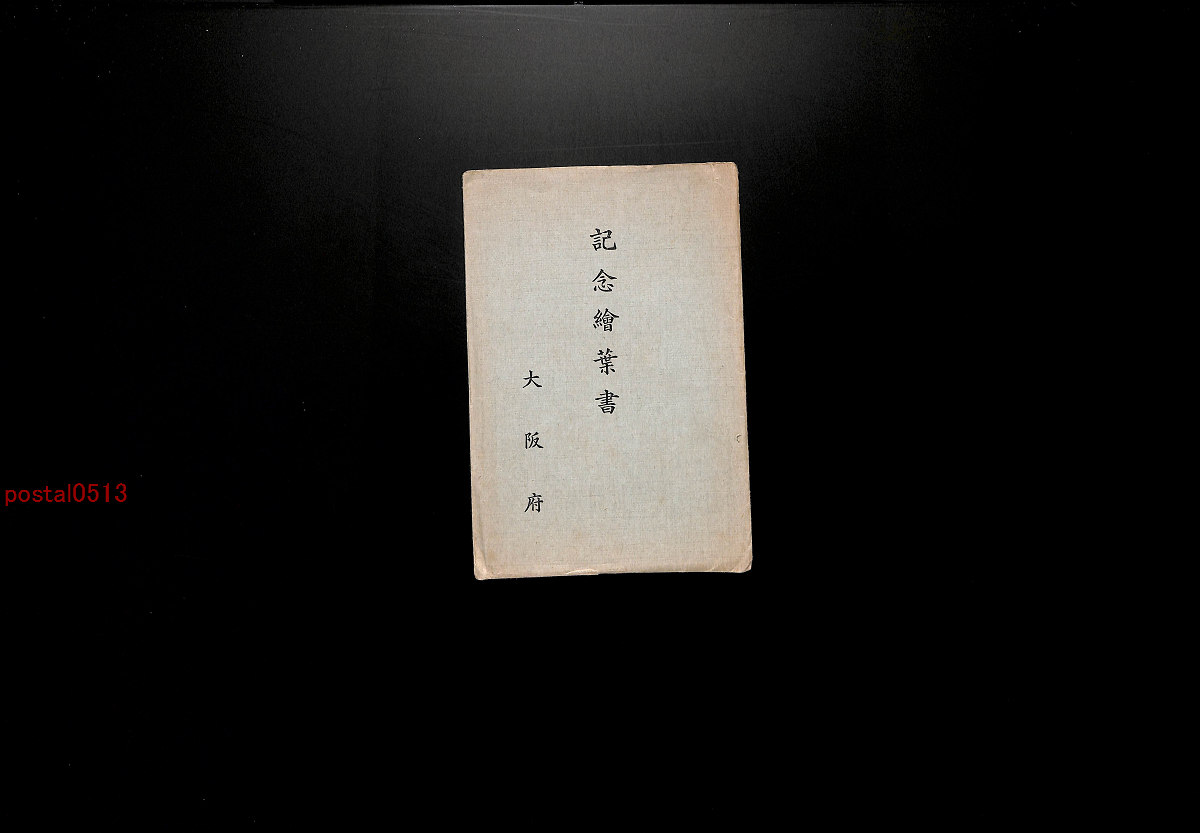 記念繪葉書
大阪府
postal0513